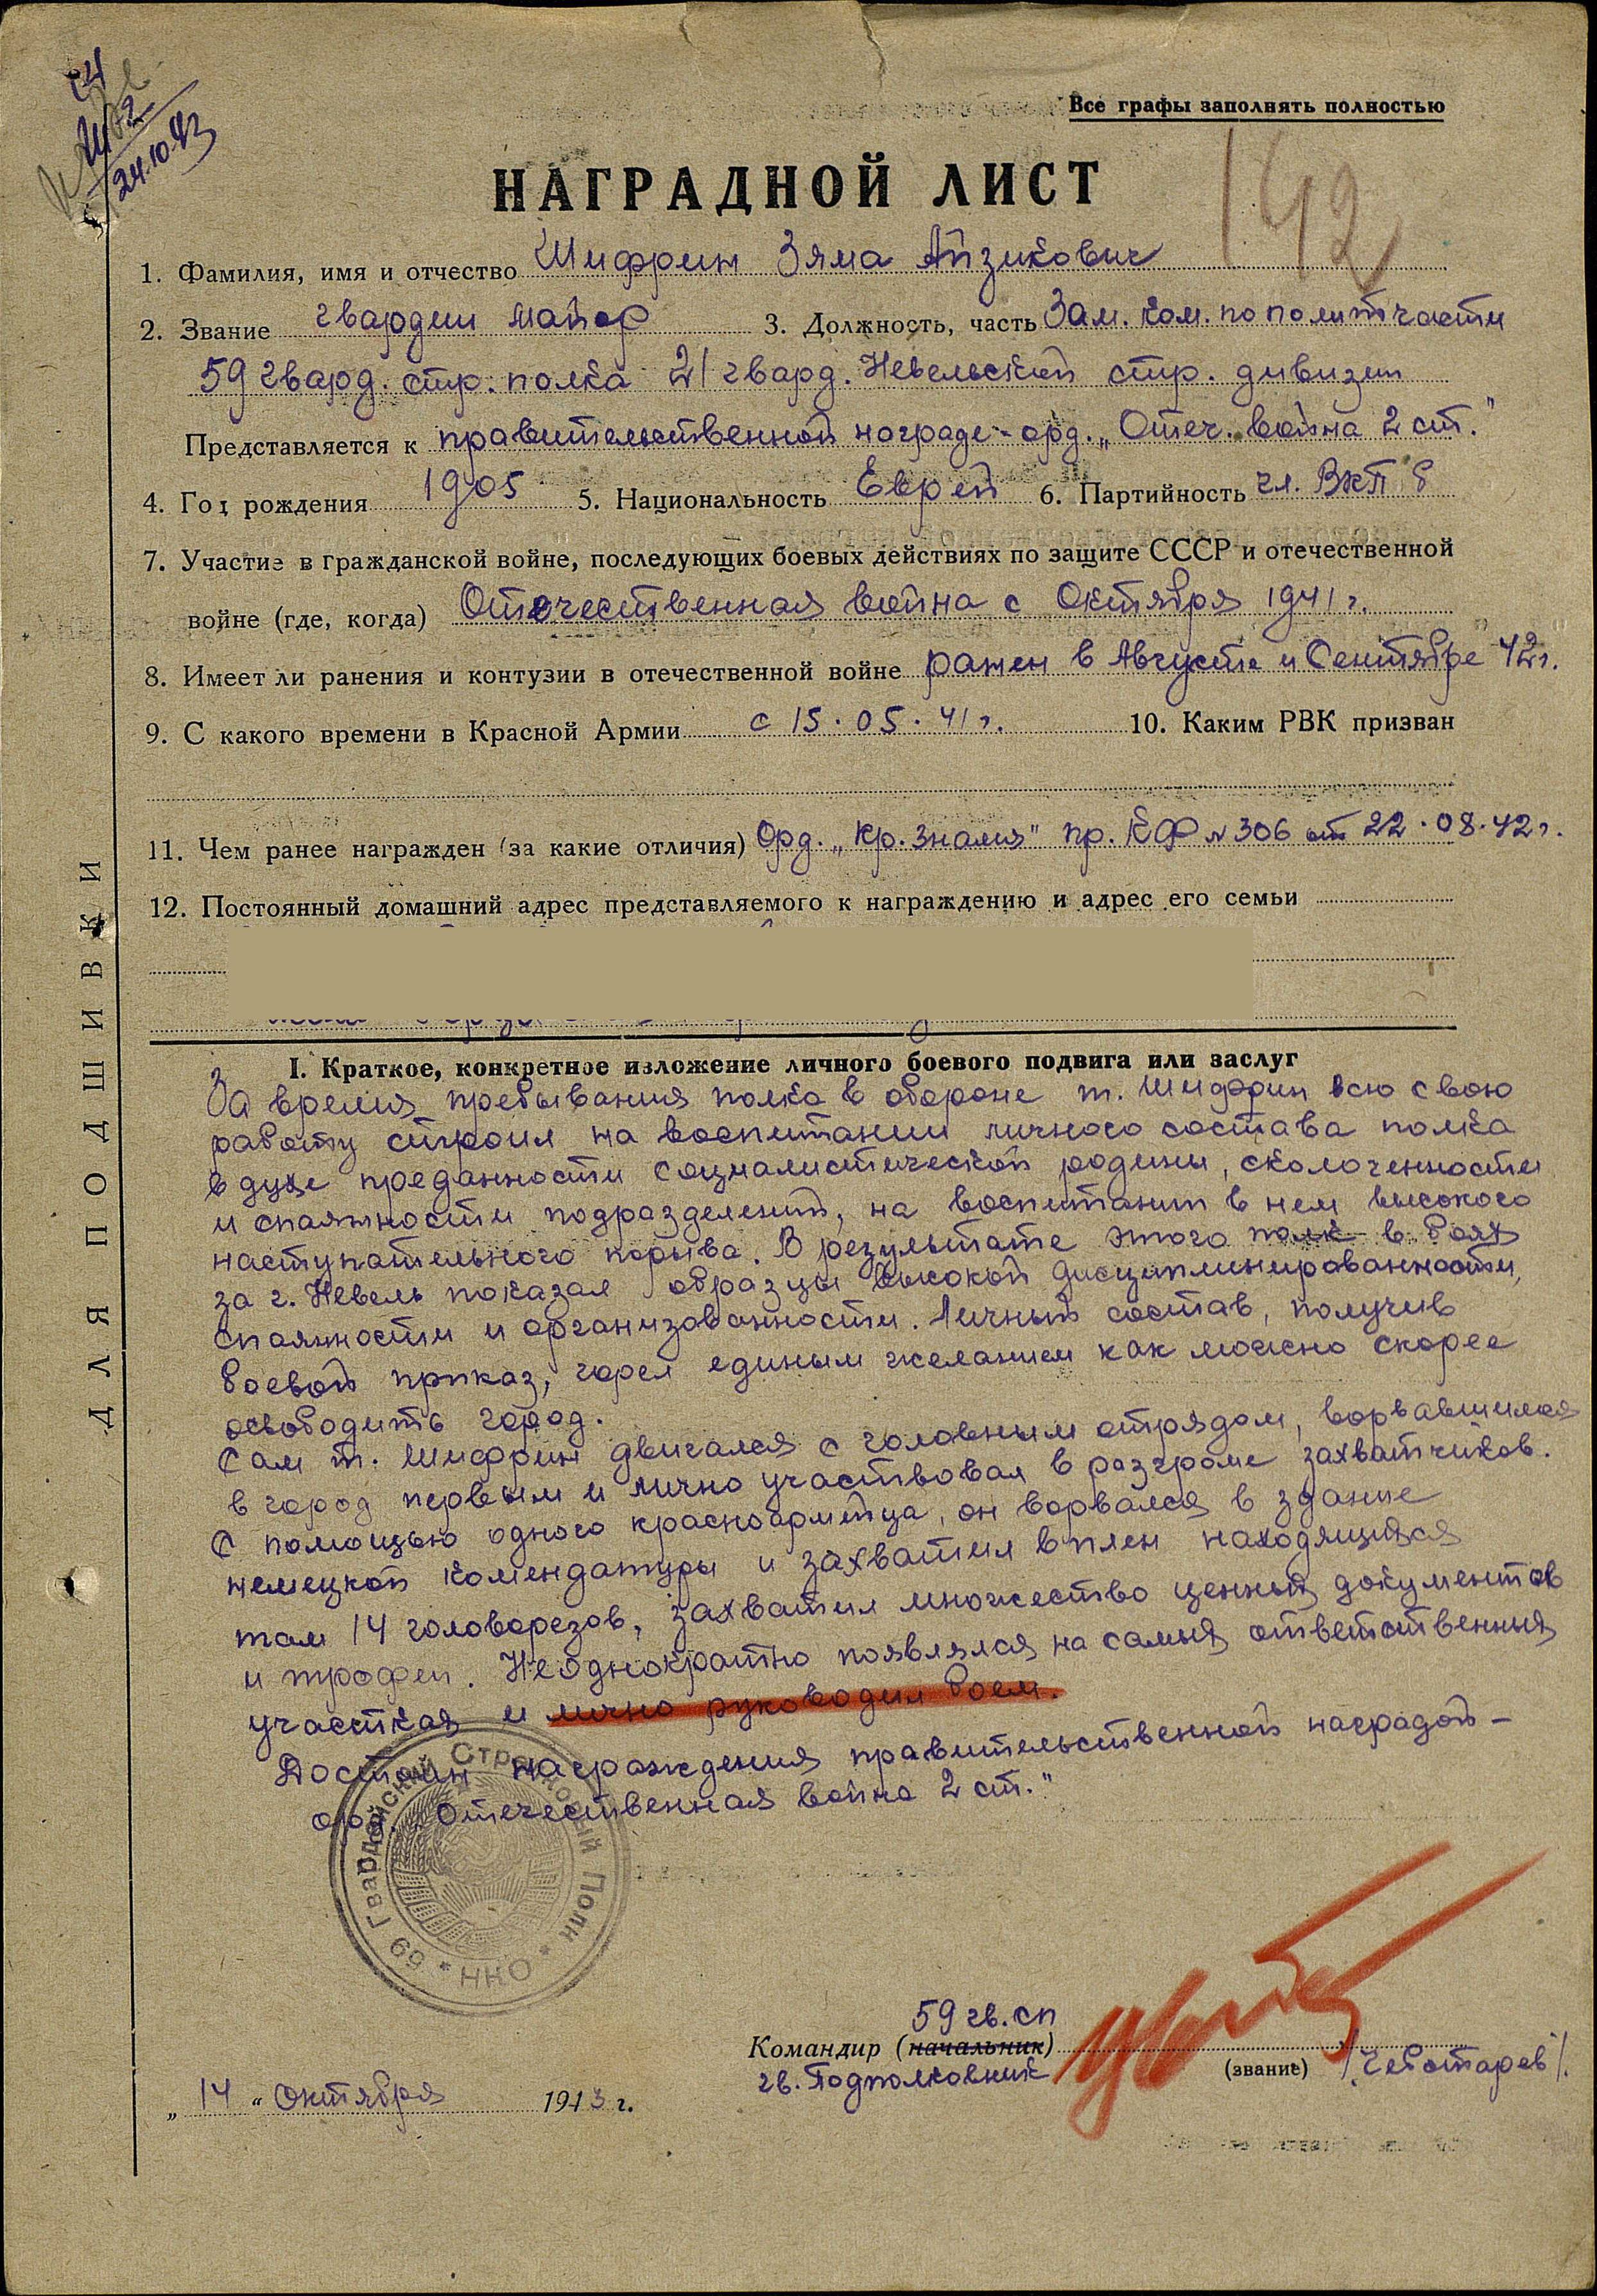 24.10.43
Все графы заполнять полностью
НАГРАДНОЙ ЛИСТ
142
1. Фамилия, имя и отчество Шифрин Зяма Айзикович
2. Звание гвардии майор 3. Должность, часть Зам. ком. по политчасти
59 гвард. стр. полка 21 гвард. Невельской стр. дивизии
Представляется к правительственной награде - орд. „Отеч. война 2 ст."
4. Год рождения 1905 5. Национальность Еврей 6. Партийность чл. ВКП б
7. Участие в гражданской войне, последующих боевых действиях по защите СССР и отечественной
войне (где, когда) Отечественная война с Октября 1941 г.
8. Имеет ли ранения и контузии в отечественной войне ранен в Августе и Сентябре 42 г.
9. С какого времени в Красной Армии с 15.05.41 г. 10. Каким РВК призван
11. Чем ранее награжден (за какие отличия) Орд. „Кр. Знамя" пр. КФ № 306 от 22.08.42 г.
12. Постоянный домашний адрес представляемого к награждению и адрес его семьи
ДЛЯ ПОДШИВКИ
I. Краткое, конкретное изложение личного боевого подвига или заслуг
За время пребывания полка в обороне т. Шифрин всю свою
работу строил на воспитании личного состава полка
в духе преданности социалистической родины, сколоченности
и спаянности подразделений, на воспитании в нем высокого
наступательного порыва. В результате этого полк в боях
за г. Невель показал образцы высокой дисциплинированности,
спаянности и организованности. Личный состав, получив
боевой приказ, горел единым желанием как можно скорее
освободить город.
Сам т. Шифрин двигался с головным отрядом, ворвавшимся
в город первым и лично участвовал в разгроме захватчиков.
С помощью одного красноармейца, он ворвался в здание
немецкой комендатуры и захватил в плен находящихся
там 14 головорезов, захватил множество ценных документов
и трофеи. Неоднократно появлялся на самых ответственных
участках и лично руководил боем.
Достоин награждения правительственной наградой -
орд. „Отечественная война 2 ст."
Гвардейский Стрелковый Полк * НКО * 59
59 гв. сп
Командир (начальник)
гв. Подполковник (звание) /Чеботарев/.
„14" Октября 1943 г.